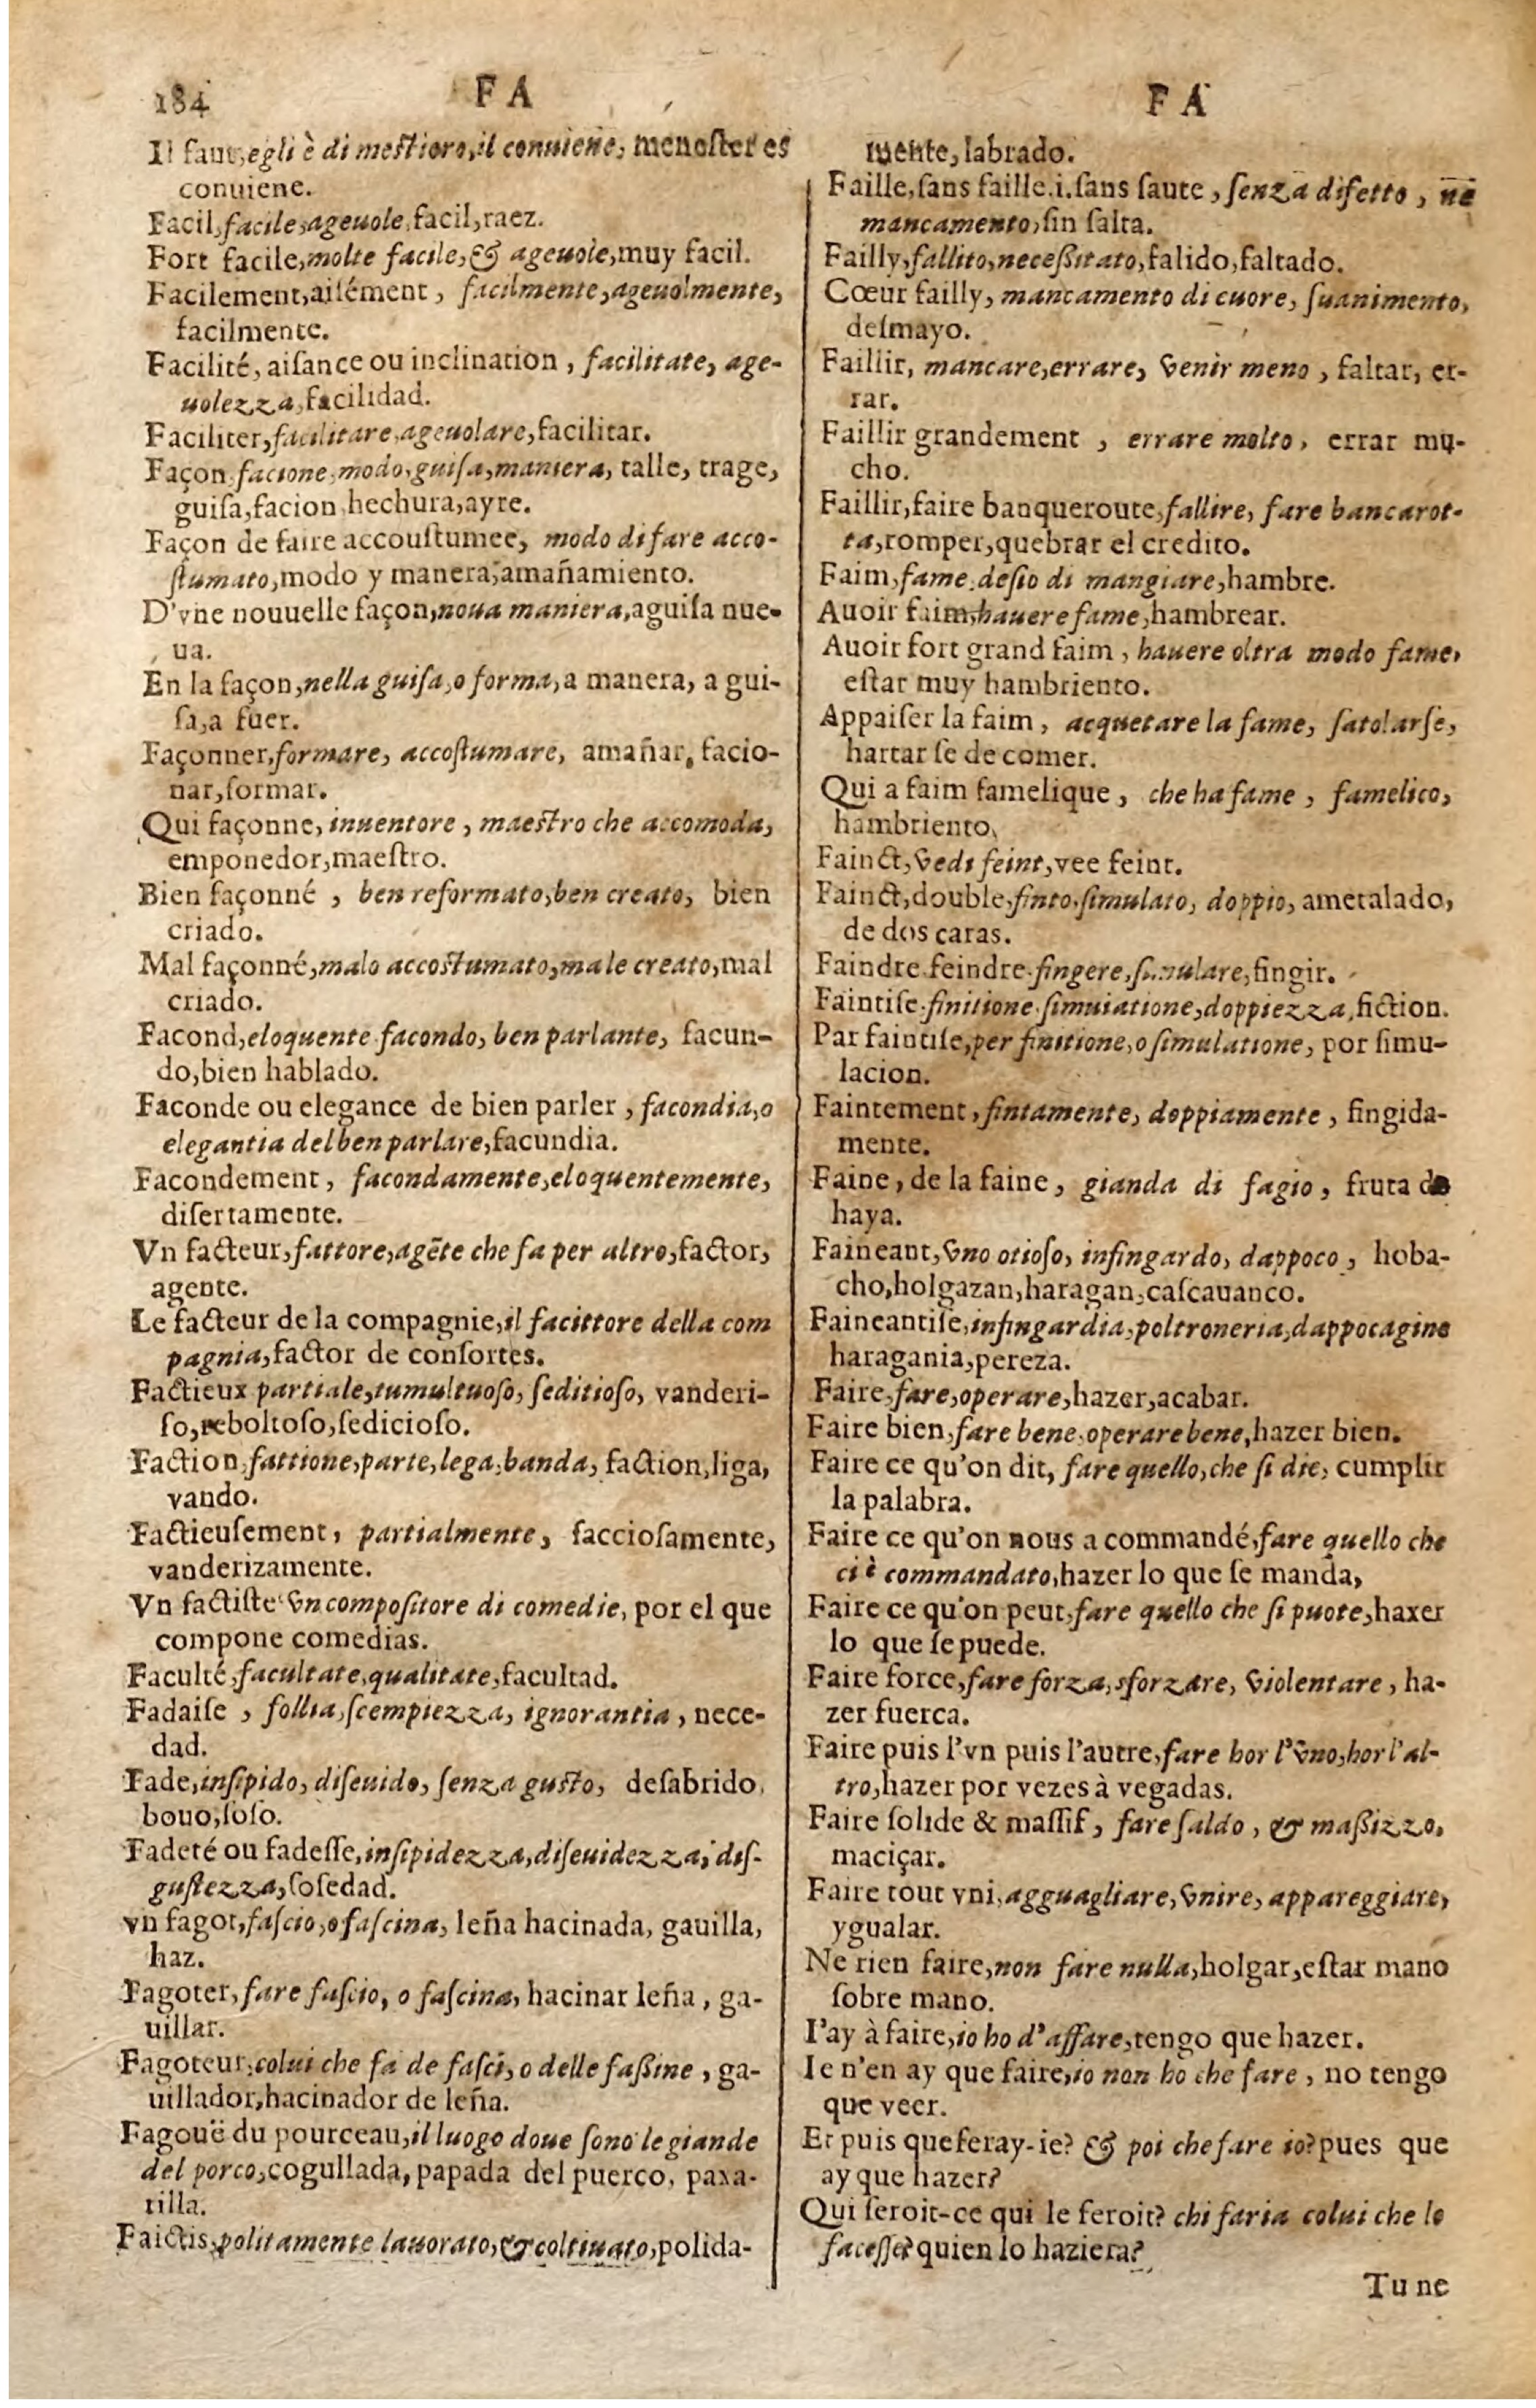 184 FA FA
Il faut, egli è di mestiero, il conuiene, menester es
conuiene.
Facil, facile, ageuole, facil, raez.
Fort facile, molte facile, & ageuole, muy facil.
Facilement, aisément, facilmente, ageuolmente,
facilmente.
Facilité, aisance ou inclination, facilitate, age-
uolezza, facilidad.
Faciliter, facilitare, ageuolare, facilitar.
Façon, facione, modo, guisa, maniera, talle, trage,
guisa, facion, hechura, ayre.
Façon de faire accoustumee, modo di fare acco-
stumato, modo y manera, amañamiento.
D'vne nouuelle façon, noua maniera, a guisa nue-
ua.
En la façon, nella guisa, o forma, a manera, a gui-
sa, a fuer.
Façonner, formare, accostumare, amañar, facio-
nar, formar.
Qui façonne, inuentore, maestro che accomoda,
emponedor, maestro.
Bien façonné, ben reformato, ben creato, bien
criado.
Mal façonné, malo accostumato, male creato, mal
criado.
Facond, eloquente facondo, ben parlante, facun-
do, bien hablado.
Faconde ou elegance de bien parler, facondia, o
elegantia del ben parlare, facundia.
Facondement, facondamente, eloquentemente,
disertamente.
Vn facteur, fattore, agẽte che fa per altro, factor,
agente.
Le facteur de la compagnie, il facittore della com
pagnia, factor de consortes.
Factieux partiale, tumultuoso, seditioso, vanderi-
so, reboltoso, sedicioso.
Faction, fattione, parte, lega, banda, faction, liga,
vando.
Factieusement, partialmente, facciosamente,
vanderizamente.
Vn factiste vn compositore di comedie, por el que
compone comedias.
Faculté, facultate, qualitate, facultad.
Fadaise, follia, scempiezza, ignorantia, nece-
dad.
Fade, insipido, diseuido, senza gusto, desabrido,
bouo, soso.
Fadeté ou fadesse, insipidezza, diseuidezza, dis-
gustezza, sosedad.
vn fagot, fascio, o fascina, leña hacinada, gauilla,
haz.
Fagoter, fare fascio, o fascina, hacinar leña, ga-
uillar.
Fagoteur, colui che fa de fasci, o delle fassine, ga-
uillador, hacinador de leña.
Fagouë du pourceau, il luogo doue sono le giande
del porco, cogullada, papada del puerco, paxa-
rilla.
Faictis, politamente lauorato, & coltiuato, polida-
mente, labrado.
Faille, sans faille. i. sans faute, senza difetto, ne
mancamento, sin falta.
Failly, fallito, necessitato, falido, faltado.
Cœur failly, mancamento di cuore, suanimento,
desmayo.
Faillir, mancare, errare, venir meno, faltar, er-
rar.
Faillir grandement, errare molto, errar mu-
cho.
Faillir, faire banqueroute, fallire, fare bancarot-
ta, romper, quebrar el credito.
Faim, fame, desio di mangiare, hambre.
Auoir faim, hauere fame, hambrear.
Auoir fort grand faim, hauere oltra modo fame,
estar muy hambriento.
Appaiser la faim, acquetare la fame, satolarse,
hartar se de comer.
Qui a faim famelique, che ha fame, famelico,
hambriento.
Fainct, vedi feint, vee feint.
Fainct, double, finto, simulato, doppio, ametalado,
de dos caras.
Faindre feindre fingere, simulare, fingir.
Faintise finitione simulatione, doppiezza, fiction.
Par faintise, per finitione, o simulatione, por simu-
lacion.
Faintement, fintamente, doppiamente, fingida-
mente.
Faine, de la faine, gianda di fagio, fruta de
haya.
Faineant, vno otioso, infingardo, dappoco, hoba-
cho, holgazan, haragan, cascauanco.
Faineantise, infingardia, poltroneria, dappocagine
haragania, pereza.
Faire, fare, operare, hazer, acabar.
Faire bien, fare bene, operare bene, hazer bien.
Faire ce qu'on dit, fare quello, che si dic, cumplir
la palabra.
Faire ce qu'on nous a commandé, fare quello che
ci è commandato, hazer lo que se manda,
Faire ce qu'on peut, fare quello che si puote, haxer
lo que se puede.
Faire force, fare forza, sforzare, violentare, ha-
zer fuerca.
Faire puis l'vn puis l'autre, fare hor l'vno, hor l'al-
tro, hazer por vezes à vegadas.
Faire solide & massif, fare saldo, & massizzo,
maciçar.
Faire tout vni, agguagliare, vnire, appareggiare,
ygualar.
Ne rien faire, non fare nulla, holgar, estar mano
sobre mano.
I'ay à faire, io ho d'affare, tengo que hazer.
Ie n'en ay que faire, io non ho che fare, no tengo
que veer.
Et puis que feray-ie? & poi che fare io? pues que
ay que hazer?
Qui seroit-ce qui le feroit? chi faria colui che lo
facesse? quien lo haziera?
Tu ne